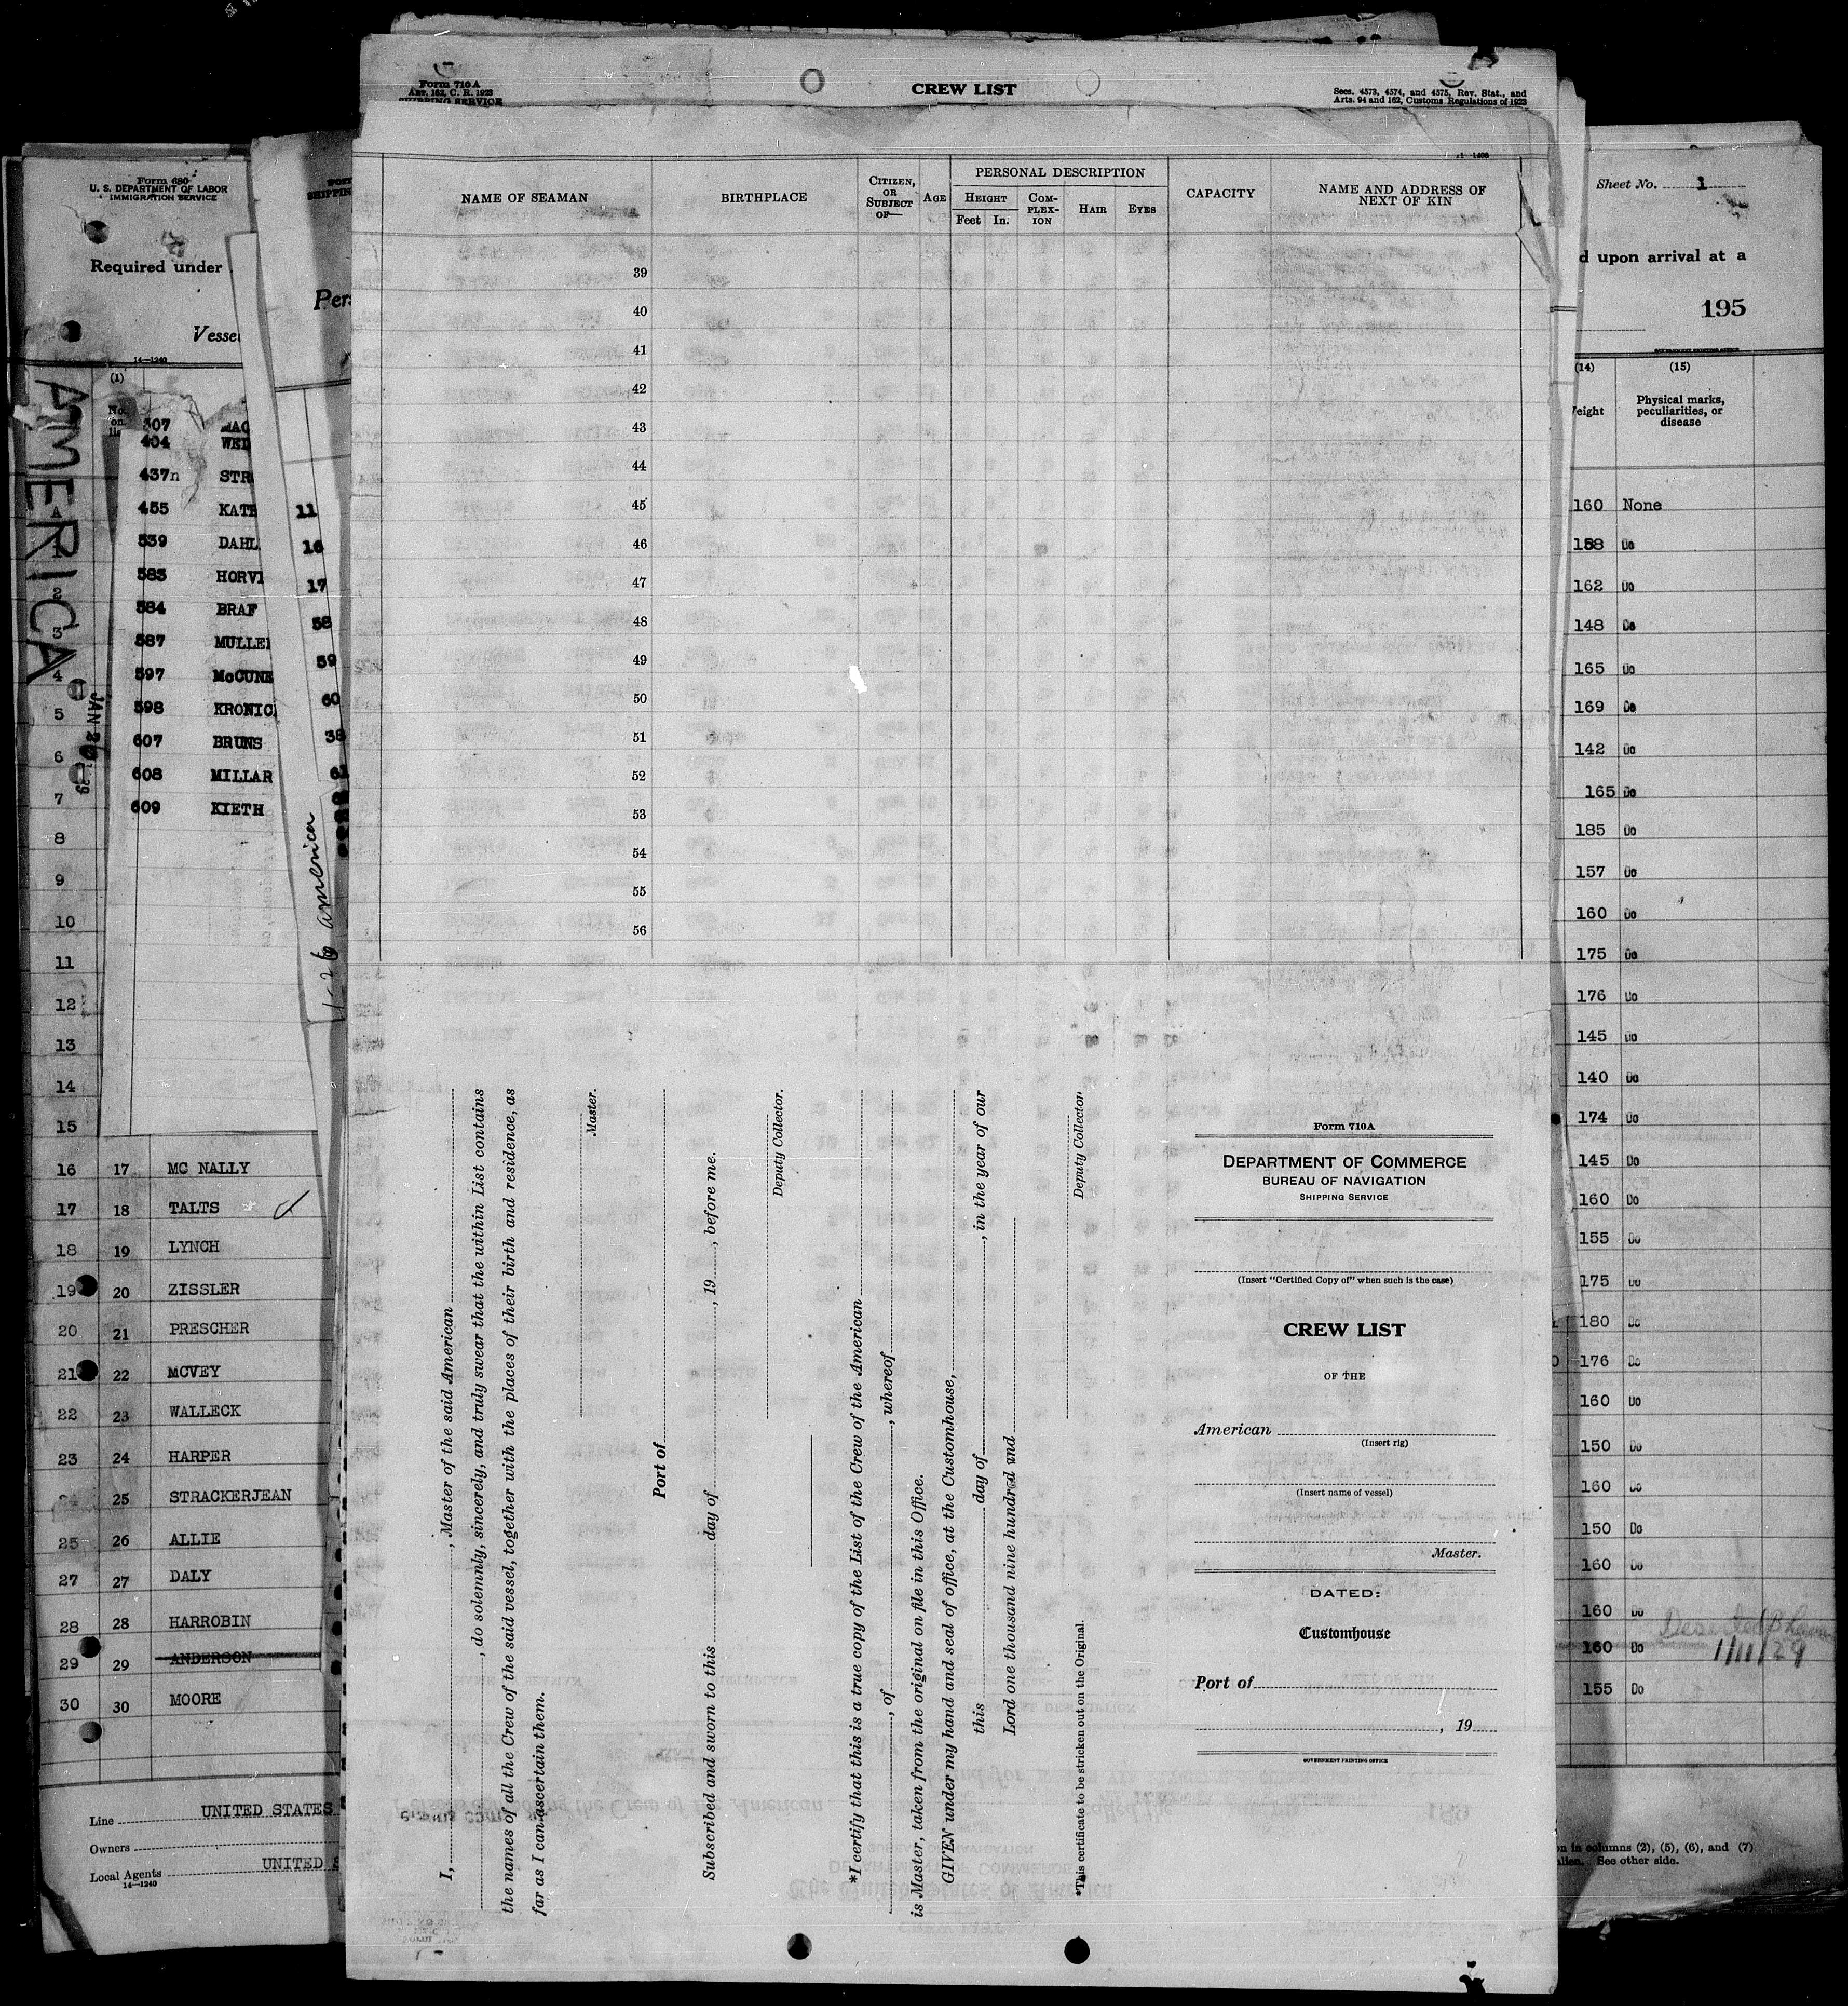 Form 710A
ART. 162, C. R. 1923
SHIPPING SERVICE
CREW LIST
Secs. 4573, 4574, and 4575, Rev. Stat., and
Arts. 94 and 162, Customs Regulations of 1923
NAME OF SEAMAN
BIRTHPLACE
CITIZEN,
OR
SUBJECT
OF—
AGE
PERSONAL DESCRIPTION
HEIGHT
Feet In.
COM-
PLEX-
ION
HAIR
EYES
CAPACITY
NAME AND ADDRESS OF
NEXT OF KIN
39
40
41
42
43
44
45
46
47
48
49
50
51
52
53
54
55
56
I, , Master of the said American
, do solemnly, sincerely, and truly swear that the within List contains
the names of all the Crew of the said vessel, together with the places of their birth and residence, as
far as I can ascertain them.
Master.
Port of
Subscribed and sworn to this day of , 19 , before me.
Deputy Collector.
*I certify that this is a true copy of the List of the Crew of the American
, of , whereof
is Master, taken from the original on file in this Office.
GIVEN under my hand and seal of office, at the Customhouse,
this day of , in the year of our
Lord one thousand nine hundred and
Deputy Collector.
*This certificate to be stricken out on the Original.
Form 710A
DEPARTMENT OF COMMERCE
BUREAU OF NAVIGATION
SHIPPING SERVICE
(Insert "Certified Copy of" when such is the case)
CREW LIST
OF THE
American
(Insert rig)
(Insert name of vessel)
Master.
DATED:
Customhouse
Port of
, 19
GOVERNMENT PRINTING OFFICE
Form 680
U. S. DEPARTMENT OF LABOR
IMMIGRATION SERVICE
Required under
Vesse
14—1240
(1)
No.
on
lis
AMERICA
JAN 2
307 MAC
404 WEI
437n STR
455 KATE
539 DAHL
583 HORVI
584 BRAF
587 MULLE
597 McCUNE
598 KRONIC
607 BRUNS
608 MILLAR
609 KIETH
1
2
3
4
5
6
7
8
9
10
11
12
13
14
15
16 17 MC NALLY
17 18 TALTS
18 19 LYNCH
19 20 ZISSLER
20 21 PRESCHER
21 22 MCVEY
22 23 WALLECK
23 24 HARPER
25 STRACKERJEAN
25 26 ALLIE
27 27 DALY
28 28 HARROBIN
29 29 ANDERSON
30 30 MOORE
Line UNITED STATES
Owners
Local Agents UNITED S
14—1240
SHIPPIN
Pers
11
16
17
58
59
60
38
61
1-26 america
Sheet No. 1
d upon arrival at a
195
GOVERNMENT PRINTING OFFICE
(14) (15)
eight
Physical marks,
peculiarities, or
disease
160 None
158 Do
162 Do
148 Do
165 Do
169 Do
142 Do
165 Do
185 Do
157 Do
160 Do
175 Do
176 Do
145 Do
140 Do
174 Do
145 Do
160 Do
155 Do
175 Do
180 Do
176 Do
160 Do
150 Do
160 Do
150 Do
160 Do
160 Do
160 Do Deserted 1/11/29
155 Do
n in columns (2), (5), (6), and (7)
alien. See other side.